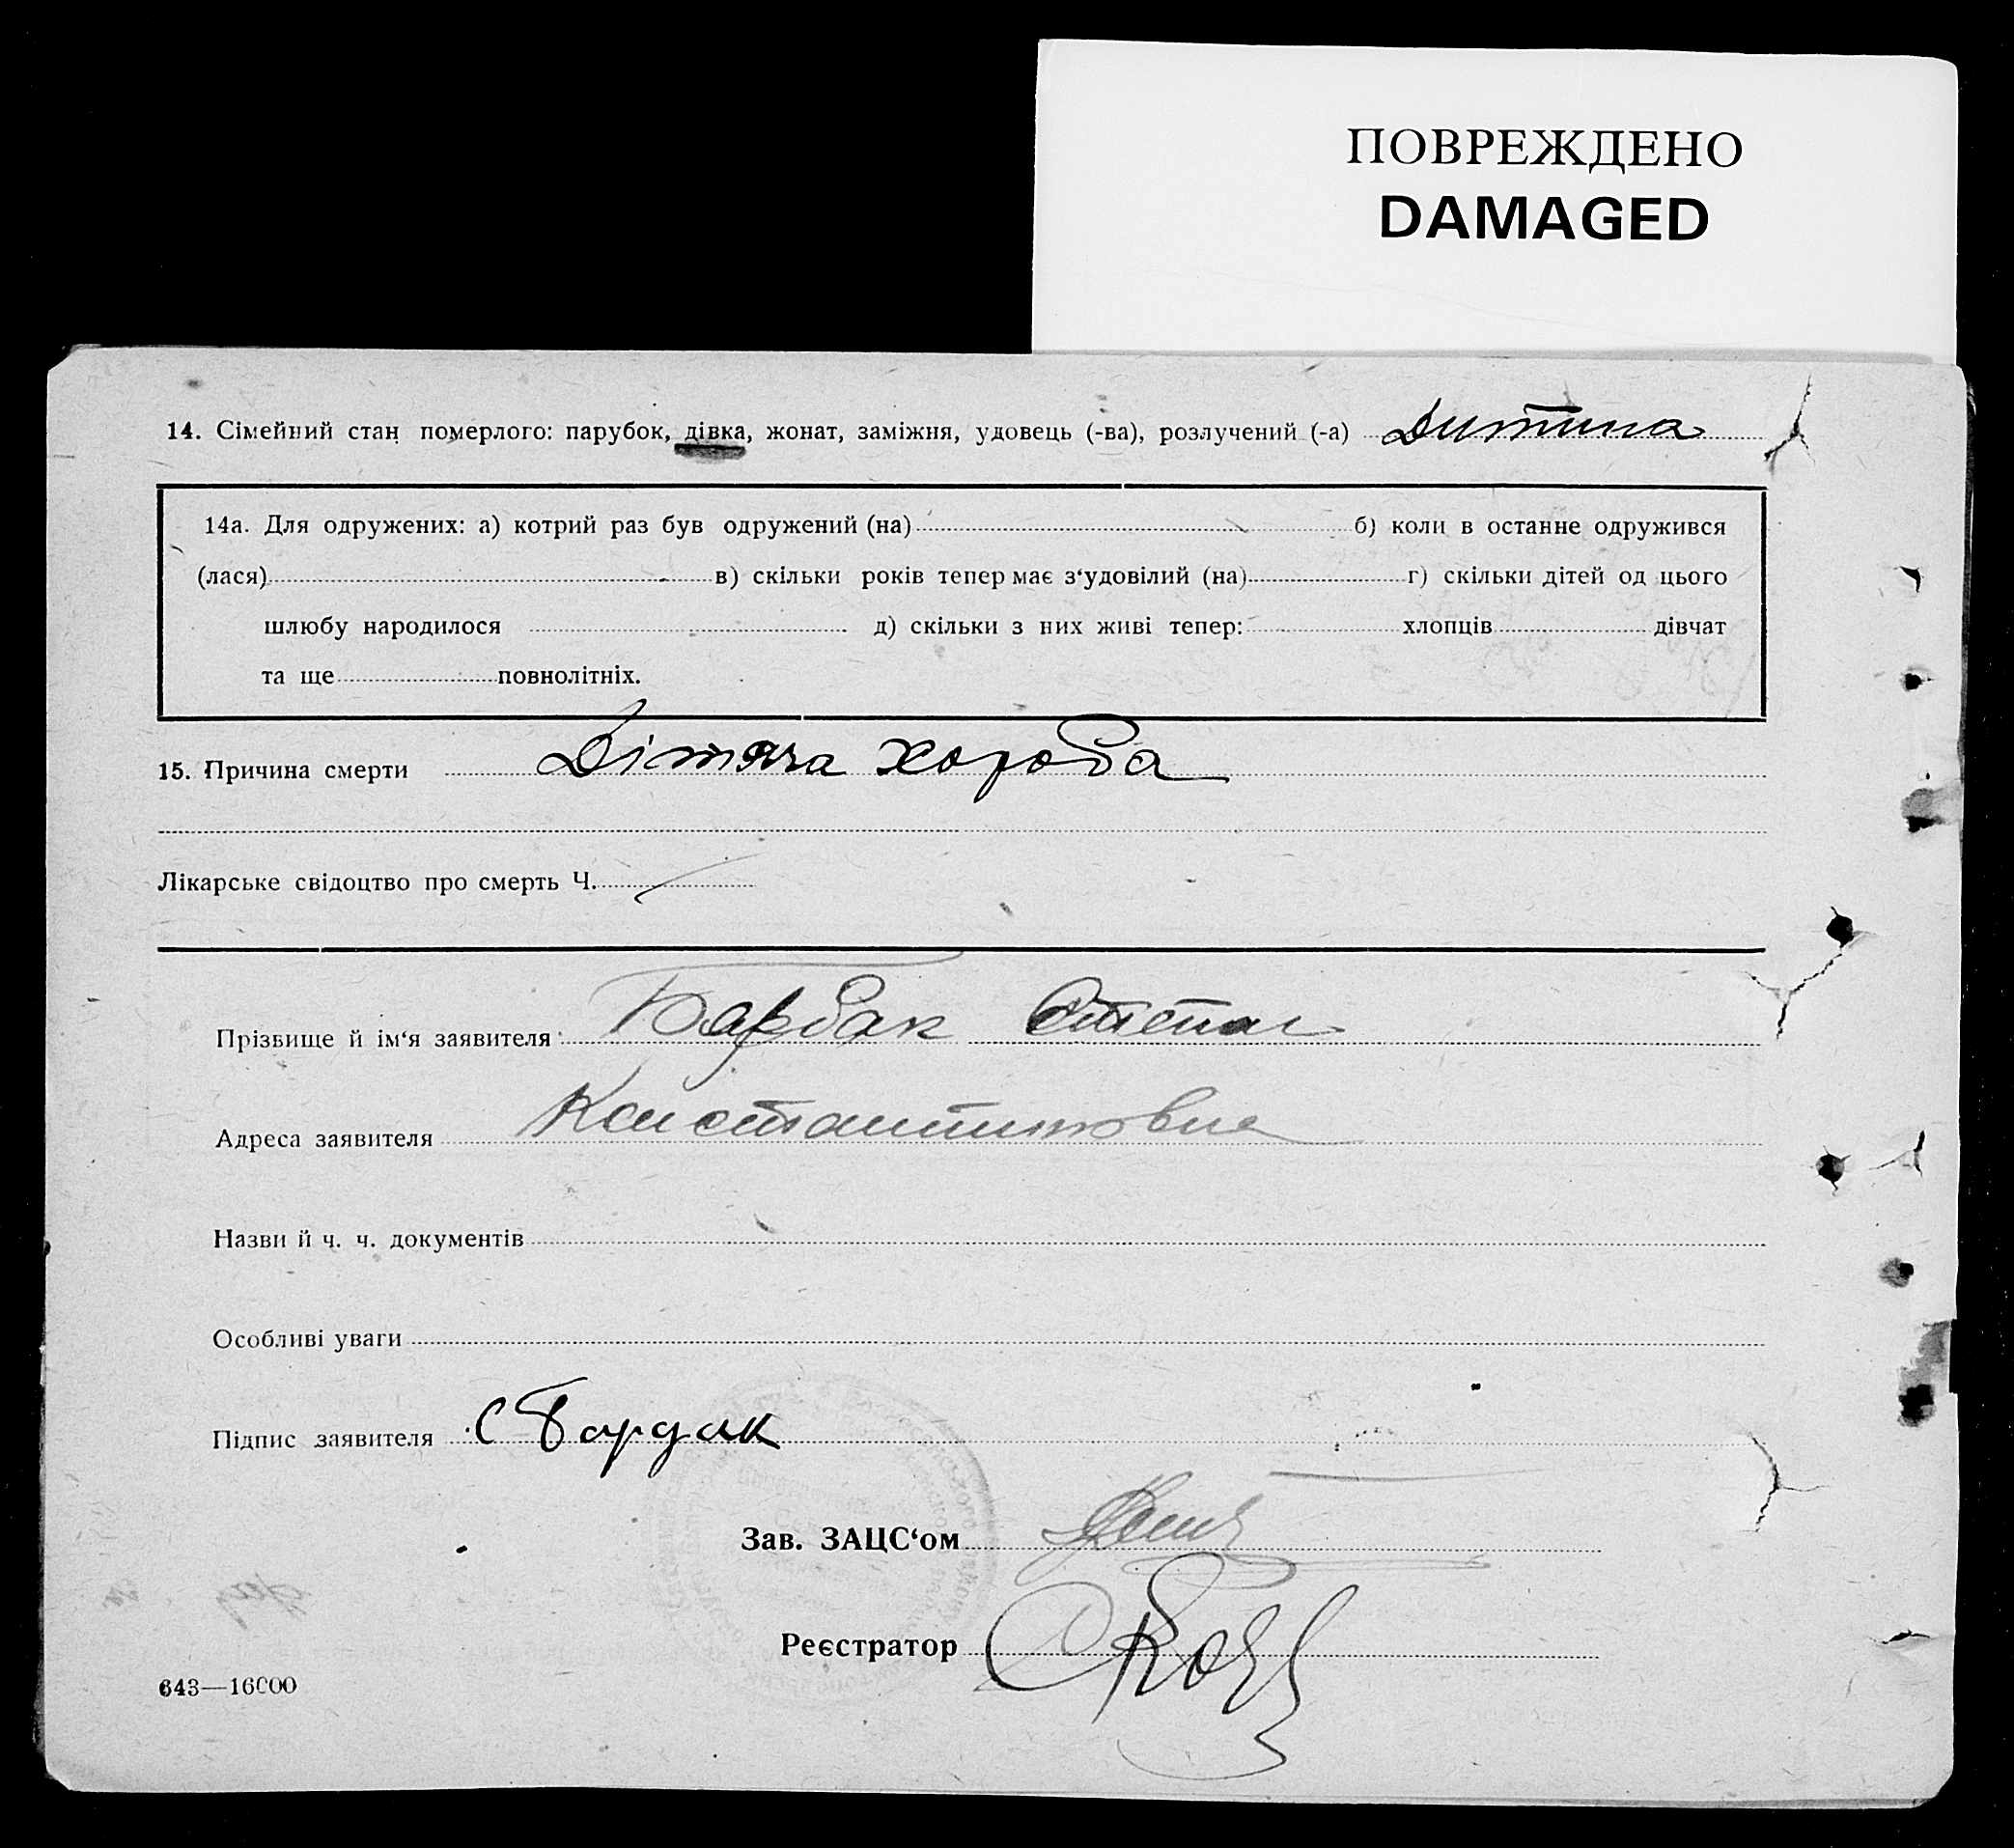 ПОВРЕЖДЕНО
DAMAGED
14. Сімейний стан померлого: парубок, дівка, жонат, заміжня, удовець (-ва), розлучений (-а) Дитина
14а. Для одружених: а) котрий раз був одружений (на) б) коли в останнє одружився
(лася) в) скільки років тепер має з‘удовілий (на) г) скільки дітей од цього
шлюбу народилося д) скільки з них живі тепер: хлопців дівчат
та ще повнолітніх.
15. Причина смерти Дітяча хороба
Лікарське свідоцтво про смерть Ч.
Прізвище й ім‘я заявителя Бардак Степан
Адреса заявителя Константиновка
Назви й ч. ч. документів
Особливі уваги
Підпис заявителя С Бардак
Зав. ЗАЦС‘ом
Реєстратор
643—16000